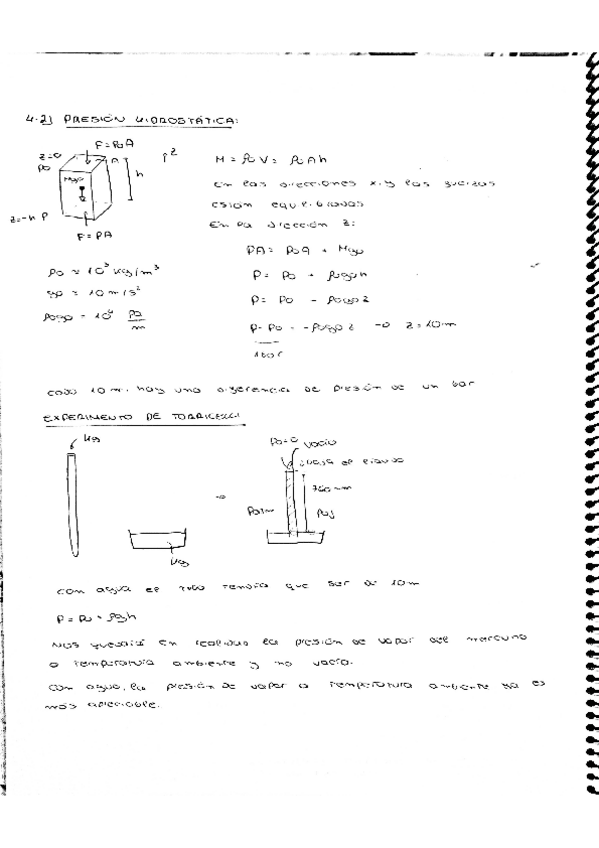 4.2) PRESIÓN HIDROSTÁTICA:
F = P₀A
z=0
P₀
A
h
↑z
Mg₀
z=-h P
F = PA
M = ρ₀V = ρ₀Ah
En las direcciones x,y las fuerzas
están equilibradas
En la dirección z:
PA = P₀A + Mg₀
P = P₀ + ρ₀g₀h
P = P₀ - ρ₀g₀z
P-P₀ = -ρ₀g₀z → z=10m
1bar
ρ₀ ≈ 10³ kg/m³
g₀ = 10m/s²
ρ₀g₀ = 10⁴ Pa/m
cada 10m. hay una diferencia de presión de un bar
EXPERIMENTO DE TORRICELLI
Hg
P₀=0 vacío
760mm
Hg
con agua el tubo tendría que ser de 10m
P = P₀ + ρgh
Nos quedaría en realidad la presión de vapor del mercurio
a temperatura ambiente y no vacío.
Con agua, la presión de vapor a temperatura ambiente ya es
más apreciable.